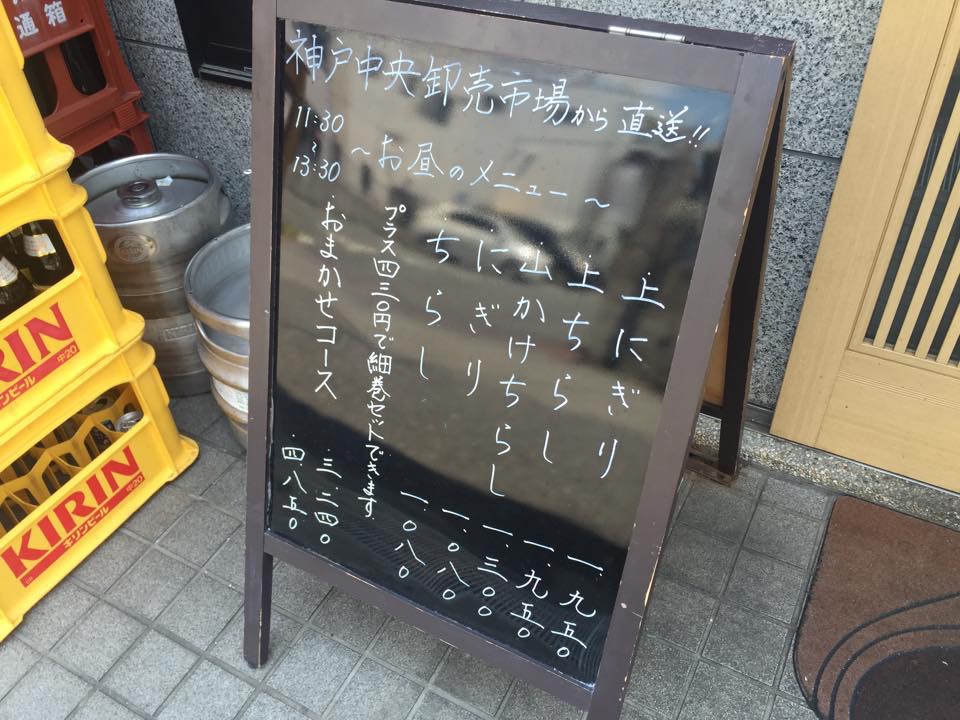 神戸中央卸売市場から直送!!
11:30
〜
13:30
〜お昼のメニュー〜
・上にぎり 一.九五〇
・上ちらし 一.九五〇
・山かけちらし 一.三〇〇
・にぎり 一.〇八〇
・ちらし 一.〇八〇
プラス四三〇円で細巻セットできます.
・おまかせコース ・三.二四〇
・四.八五〇
通箱
KIRIN
中20
キリンビール
KIRIN
キリンビール